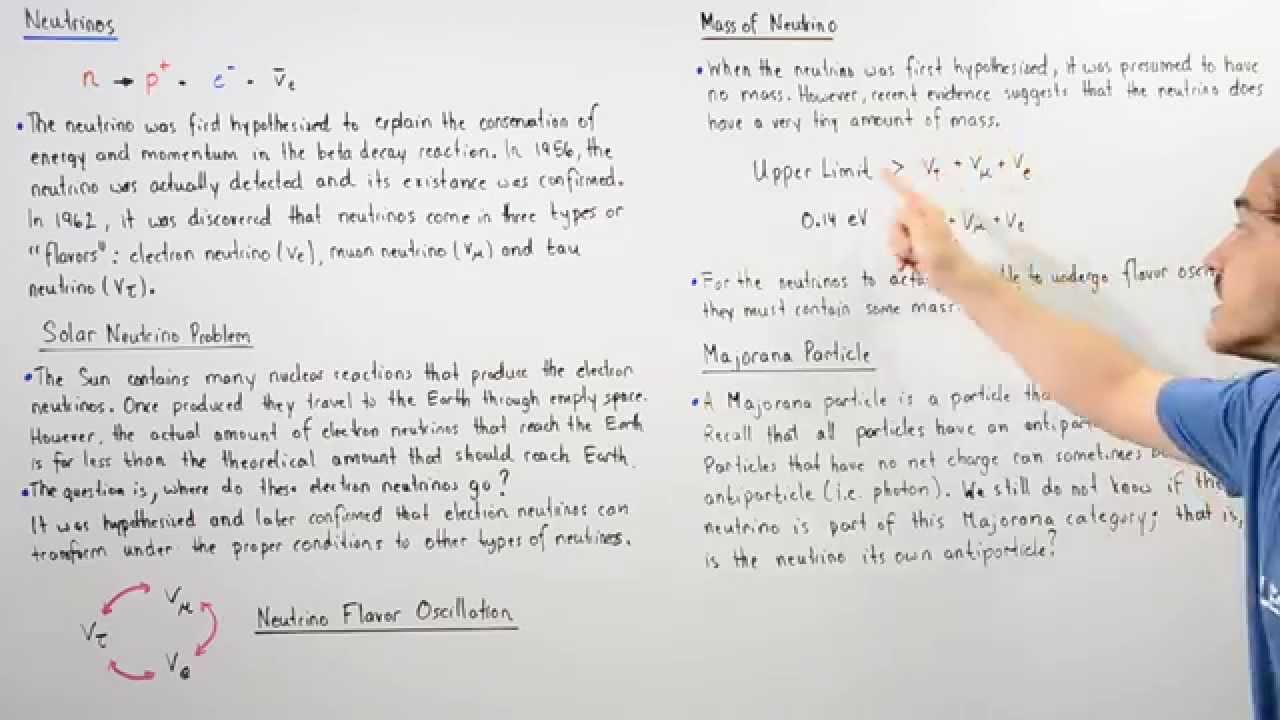 Neutrinos
n → p⁺ + e⁻ + ν̄e
• The neutrino was first hypothesized to explain the conservation of
energy and momentum in the beta decay reaction. In 1956, the
neutrino was actually detected and its existance was confirmed.
In 1962, it was discovered that neutrinos come in three types or
"flavors": electron neutrino (νe), muon neutrino (νμ) and tau
neutrino (ντ).
Solar Neutrino Problem
• The Sun contains many nuclear reactions that produce the electron
neutrinos. Once produced they travel to the Earth through empty space.
However, the actual amount of electron neutrinos that reach the Earth
is far less than the theoretical amount that should reach Earth.
• The question is, where do these electron neutrinos go?
It was hypothesized and later confirmed that electron neutrinos can
transform under the proper conditions to other types of neutrinos.
νμ
ντ
νe
Neutrino Flavor Oscillation
Mass of Neutrino
• When the neutrino was first hypothesized, it was presumed to have
no mass. However, recent evidence suggests that the neutrino does
have a very tiny amount of mass.
Upper Limit > ντ + νμ + νe
0.14 eV + νμ + νe
• For the neutrinos to to undergo flavor
they must contain some mass.
Majorana Particle
• A Majorana particle is a particle
Recall that all particles have an
Particles that have no net charge can sometimes
antiparticle (i.e. photon). We still do not know if
neutrino is part of this Majorana category; that is,
is the neutrino its own antiparticle?